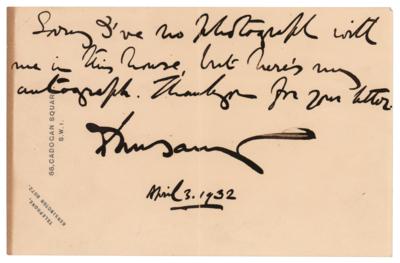 Sorry I've no photograph with
me in this house, but here's my
autograph. Thankyou for your letter.
Dunsany
April 3. 1932
66, CADOGAN SQUARE,
S.W.1.
TELEPHONE,
KENSINGTON